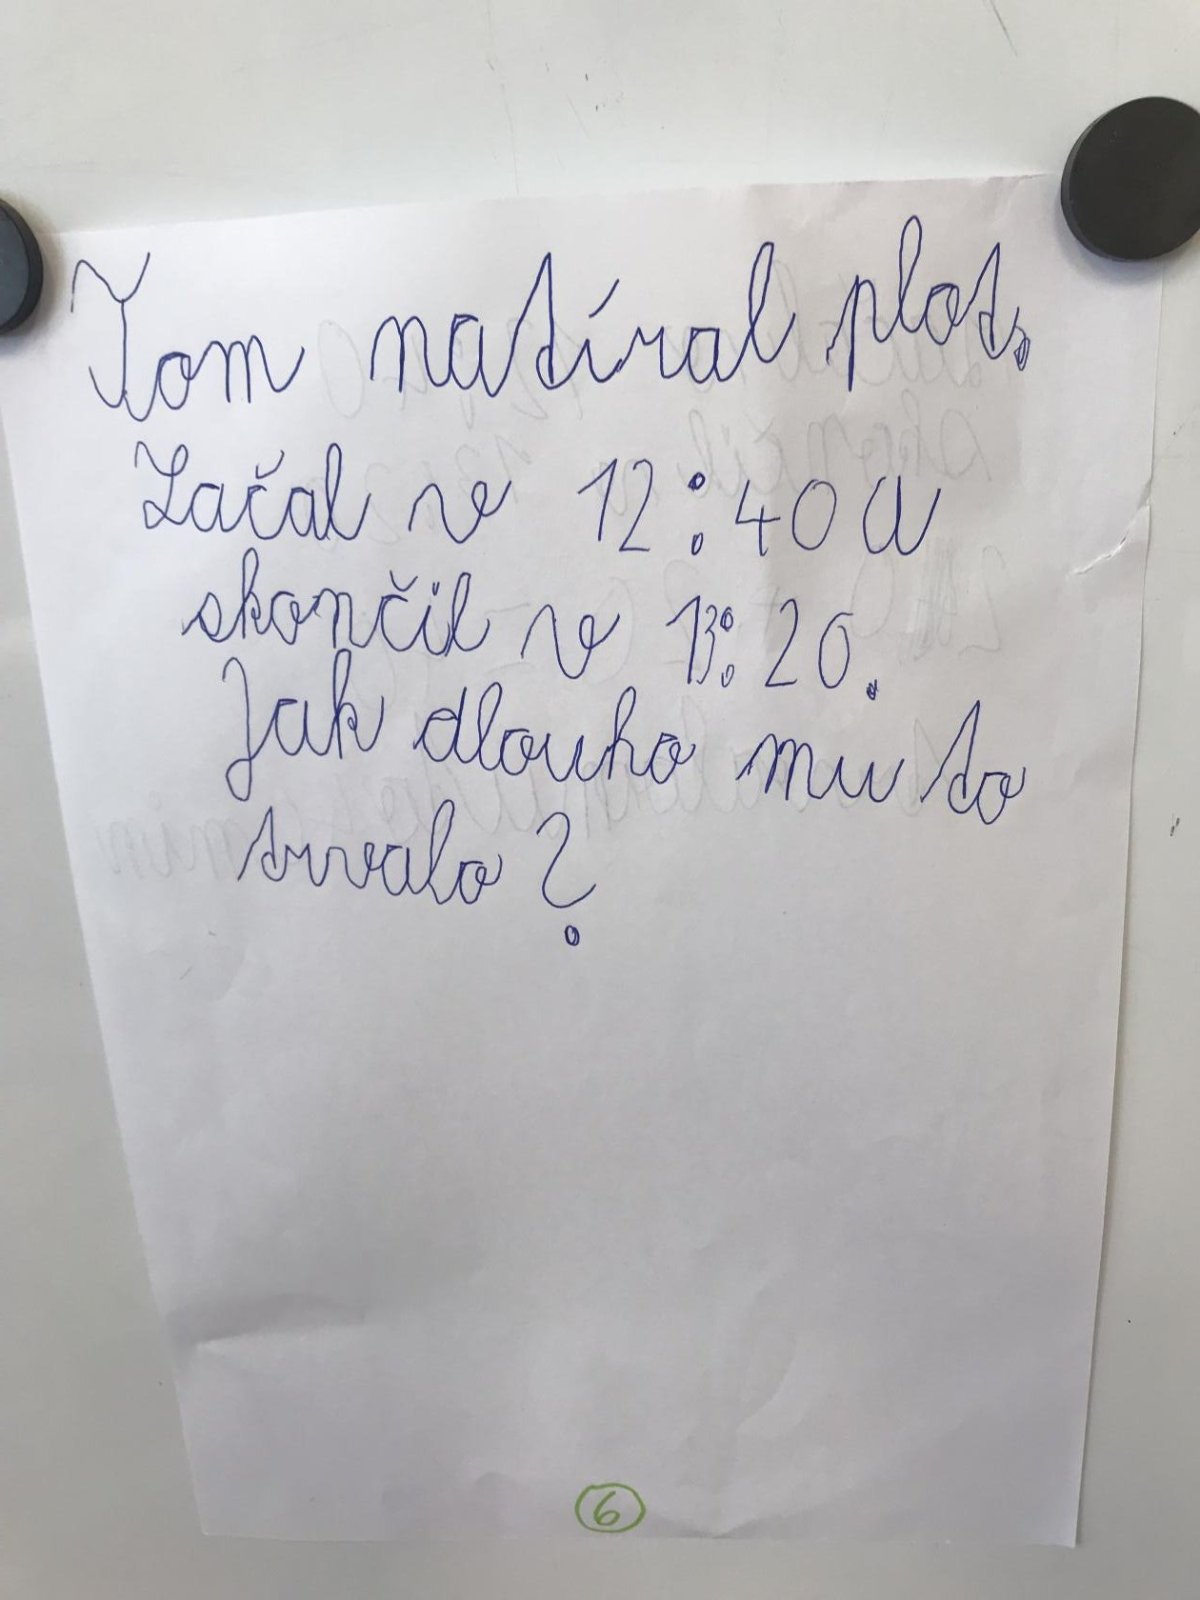 Tom natíral plot.
Začal v 12:40 a
skončil v 13:20.
Jak dlouho mu to
trvalo?
6